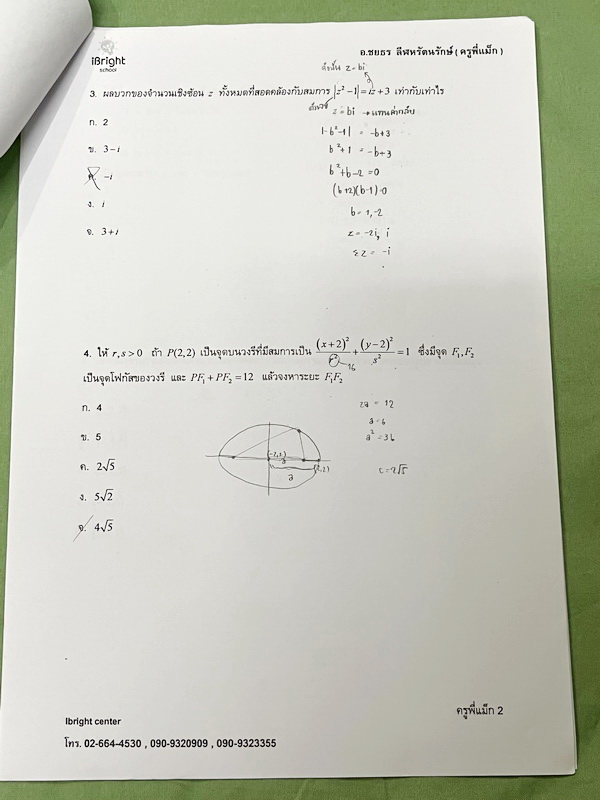 iBright
school
อ.ชยธร ลีฬหรัตนรักษ์ ( ครูพี่แม็ก )
ดังนั้น z = bi
3. ผลบวกของจำนวนเชิงซ้อน z ทั้งหมดที่สอดคล้องกับสมการ |z² −1| = iz + 3 เท่ากับเท่าไร
z = bi → แทนค่ากลับ
ก. 2
|-b²-1| = -b+3
ข. 3 − i
b²+1 = -b+3
ค. −i
b²+b-2 = 0
(b+2)(b-1)=0
ง. i
b = 1, -2
จ. 3 + i
z = -2i, i
Σz = -i
4. ให้ r, s > 0 ถ้า P(2,2) เป็นจุดบนวงรีที่มีสมการเป็น (x+2)²/r² + (y−2)²/s² = 1 ซึ่งมีจุด F₁, F₂
16
เป็นจุดโฟกัสของวงรี และ PF₁ + PF₂ = 12 แล้วจงหาระยะ F₁F₂
ก. 4
2a = 12
a = 6
ข. 5
a² = 36
(-2,2)
a
(2,2)
ค. 2√5
c = 2√5
a
ง. 5√2
จ. 4√5
ครูพี่แม็ก 2
Ibright center
โทร. 02-664-4530 , 090-9320909 , 090-9323355